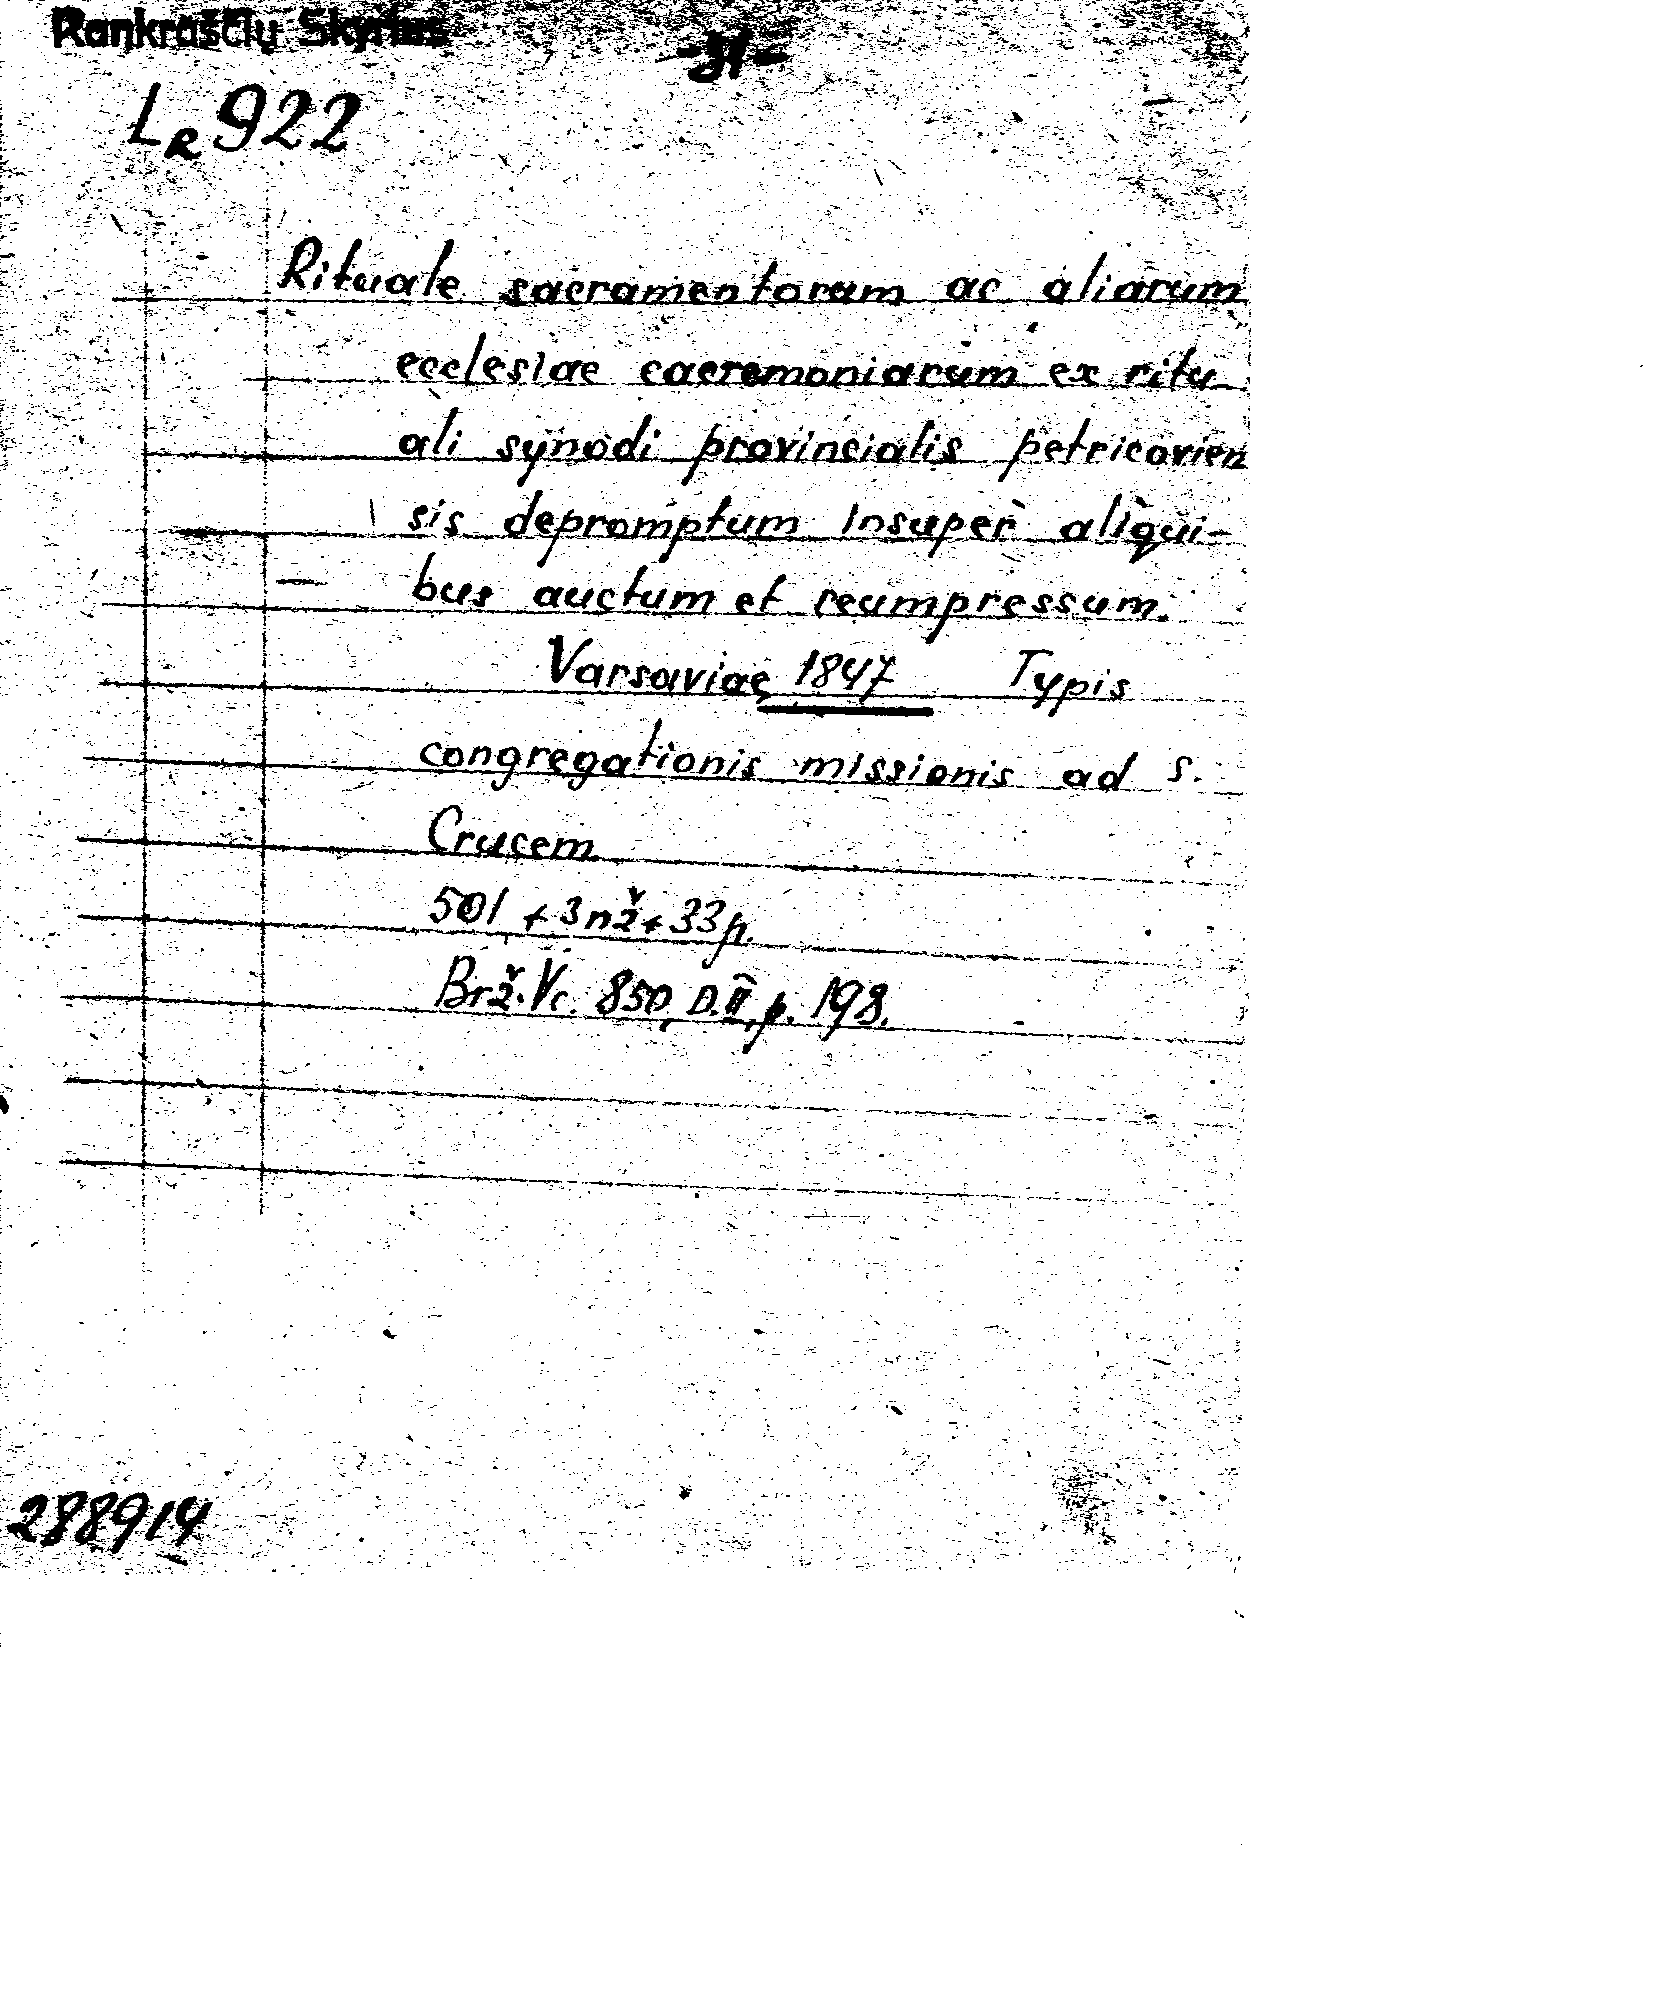 Rankraščių Skyrius
-31-
LR 922
Rituale sacramentorum ac aliarum
ecclesiae caeremoniarum ex ritu
ali synodi provincialis petricovien
sis depromptum insuper aliqui-
bus auctum et reumpressum.
Varsaviae 1847 Typis
congregationis missionis ad S.
Crucem
501 + 3 nž + 33 p.
Brž. Vc. 850, D.II, p. 198.
288914